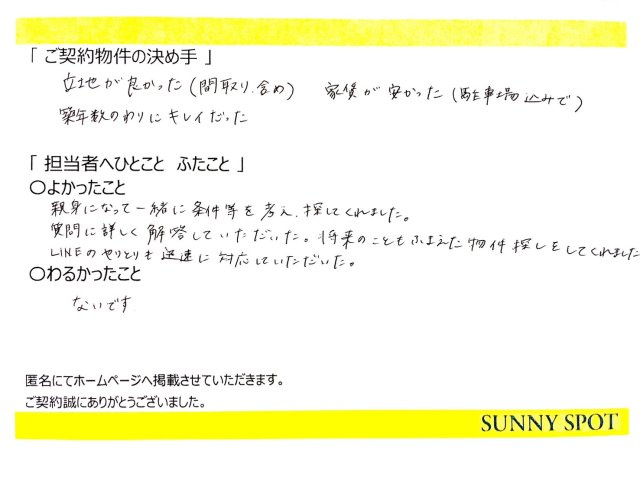 「 ご契約物件の決め手 」
立地が良かった(間取り、含め) 家賃が安かった(駐車場込みで)
築年数のわりにキレイだった
「 担当者へひとこと ふたこと 」
○よかったこと
親身になって一緒に条件等を考え、探してくれました。
質問に詳しく解答していただいた。将来のこともふまえた物件探しをしてくれました
LINEのやりとりも迅速に対応していただいた。
○わるかったこと
ないです
匿名にてホームページへ掲載させていただきます。
ご契約誠にありがとうございました。
SUNNY SPOT